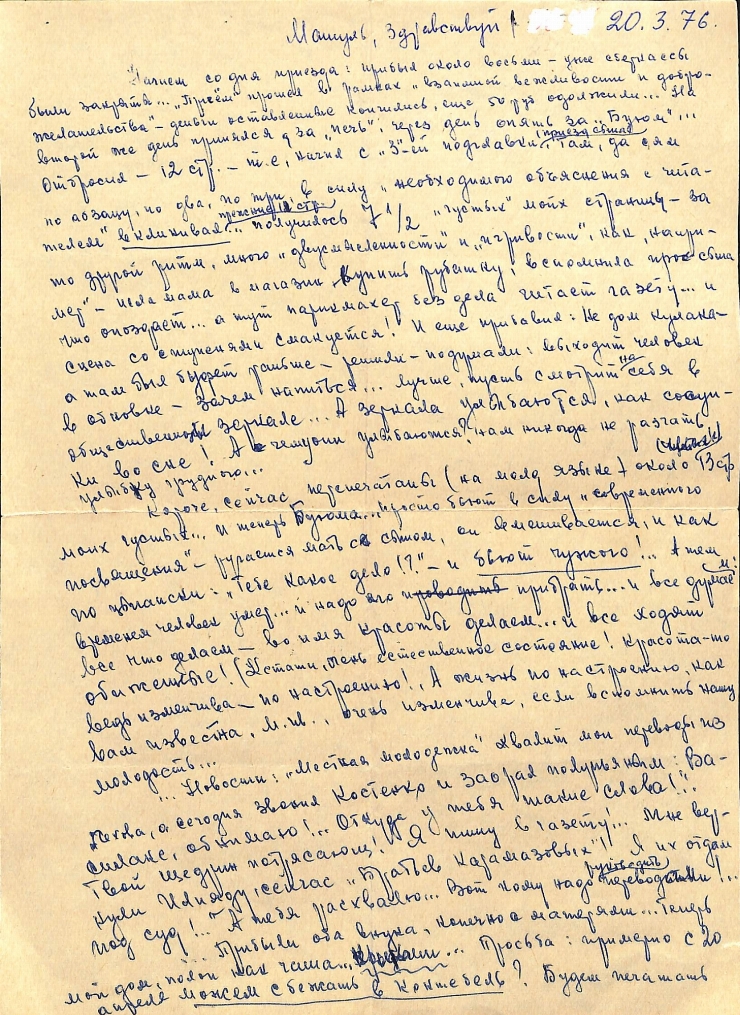 Машуль, Здравствуй! 20.3.76.
Начнем со дня приезда: прибыл около восьми – уже сберкассы
были закрыты... „Приём" прошел в рамках „взаимной вежливости и добро-
желательства" – деньги оставленные кончились, еще 50 руб одолжили... На
второй же день принялся я за „печь"; через день опять за „Бугом"...
Отбросил – 12 стр. – т.е. начил с „3"-ей подглавки (приезд сына) „Там, да сям
по абзацу, но два, по три, в силу „необходимого объяснения с чита-
телем" вклинивая... (прежние 12 стр.) получилось 7 1/2 „густых" моих страниц – за
то другой ритм, много „двусмысленности" и „игривости", как, напри-
мер" – шла мама в магазин купить рубашку; вспомнила про сына
что опоздает... а тут парикмахер без дела читает газету... и
сцена со ступенями смакуется! И еще прибавил: Не дом кулака-
а там был будет раньше – решили – подумали: выходит человек
в обновке – зачем напиться... лучше, пусть смотрит на себя в
общественном зеркале... А зеркала улыбаются, как сосун-
ки во сне! А чему они улыбаются? нам никогда не разгать
улыбку грудного...
Короче, сейчас перепечатаны (на молд языке) около 13 стр
моих густых... И теперь Бугома... просто бьют в силу „современного
посвящения" – ругается мать с сыном, он вмешивается, и как
по цыгански: „Тебе какое дело!?" – и бьют чужого!... А тем
временем человек умер... и надо его прибрать... и все думаем:
все что делаем – во имя красоты делаем... и все ходят
обиженные! (Кстати, очень естественное состояние! Красота-то
ведь изменчива – по настроению!, А жизнь по настроению, как
вам известна, М.И., очень изменчива, если вспомнить нашу
молодость...
... Новости: „Местная молодежка" хвалит мои переводы из
Чехова, а сегодня звонил Костенко и заорал полупьяным: Ва-
силаке, обнимаю!... Откуда у тебя такие слова!...
Твой Щедрин потрясающ! Я пишу в газету!... Мне вер-
нули Илиаду, сейчас „Братьев Карамазовых"! Я их отдам
под суд!... А тебя расхвалю... Вот кому надо руководить переводами!...
... Прибыли оба внука, конечно с матерями... Теперь
мой дом, полон как чаша... ... Просьба: примерно с 20
апреля можем сбежать в Коктебель? Будем печатать